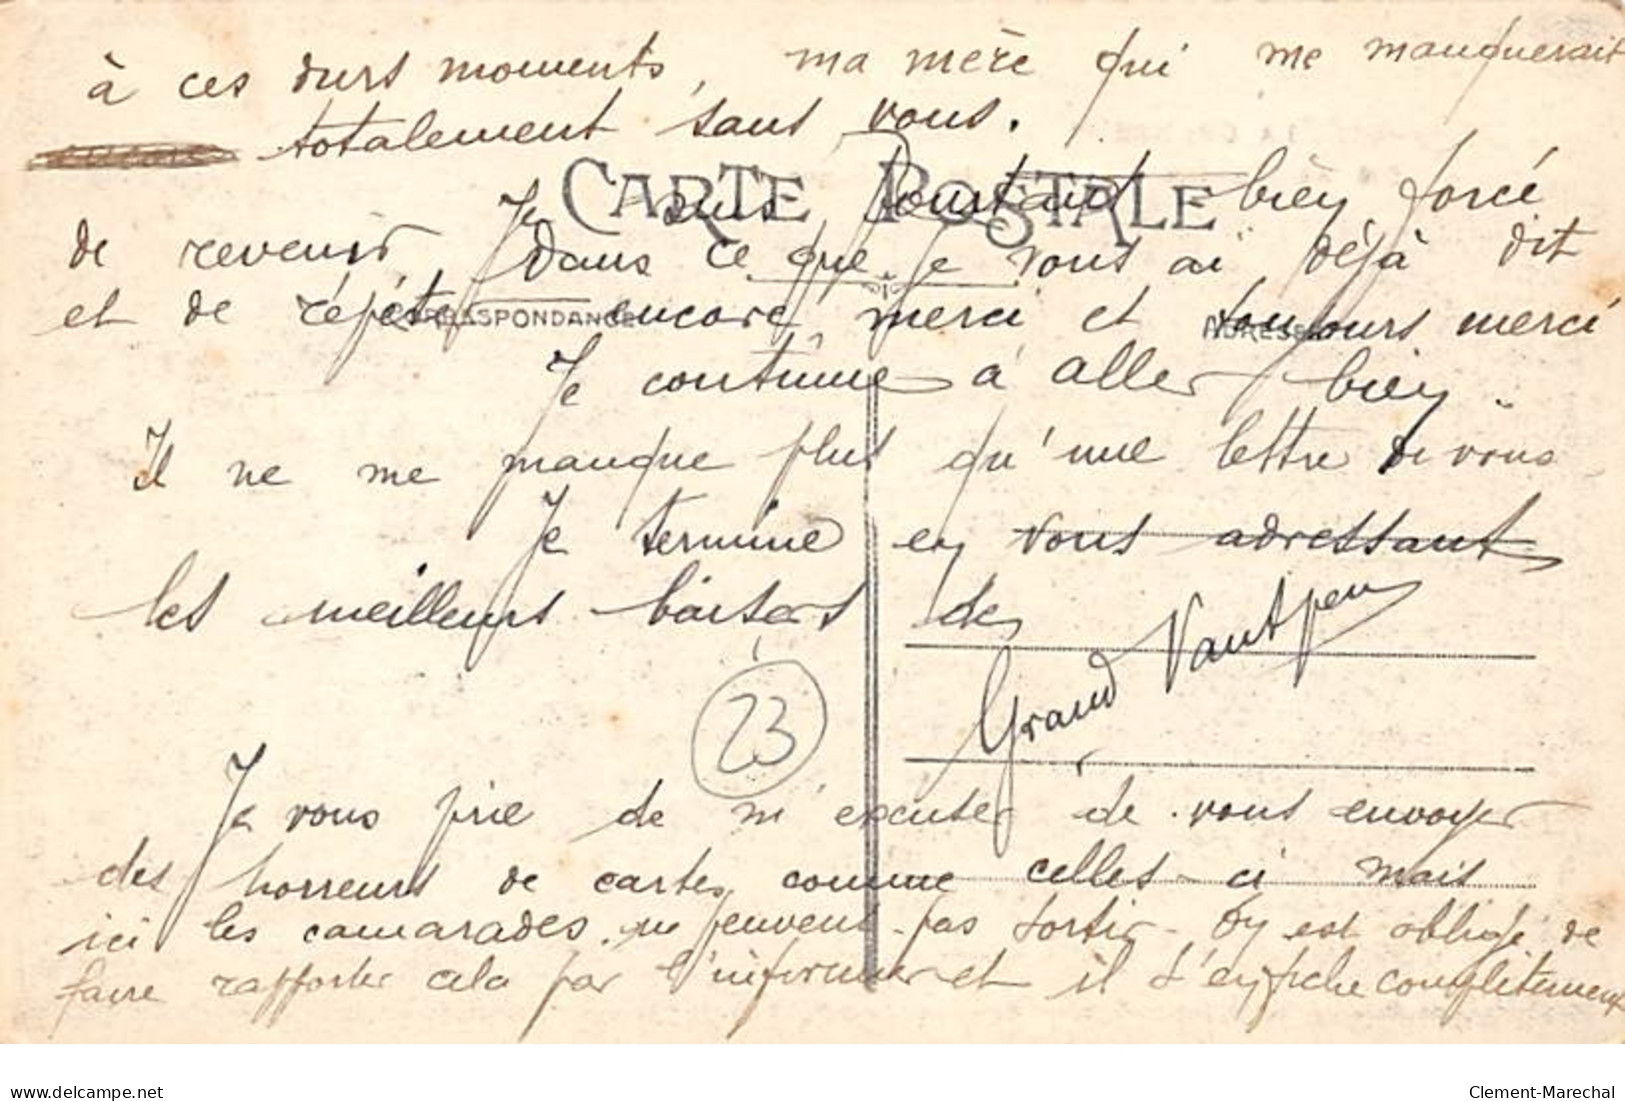 à ces durs moments, ma mère qui me manquerait
totalement sans vous.
CARTE POSTALE
Je suis pourtant bien forcé
de revenir dans ce que je vous ai déjà dit
et de répéter encore, merci et toujours merci
CORRESPONDANCE
ADRESSE
Je continue à aller bien.
Il ne me manque plus qu'une lettre de vous
Je termine en vous adressant
les meilleurs baisers de
Grand Vautpeu
23
Je vous prie de m'excuser de vous envoyer
des horreurs de cartes comme celles-ci mais
ici les camarades ne peuvent pas sortir. On y est obligé de
faire rapporter cela par l'infirmier et il s'en fiche complètement
delcampe.net
Clement-Marechal